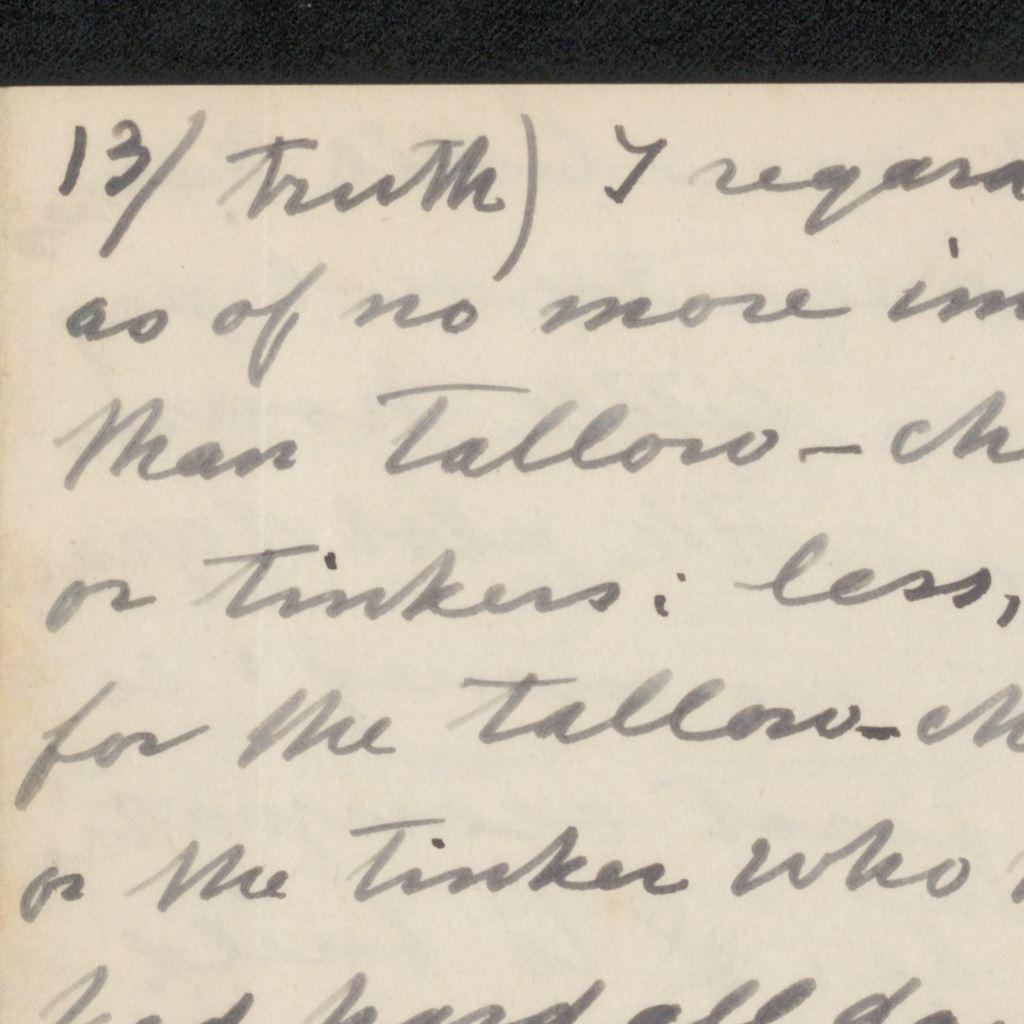 13/ truth) I regard
as of no more im
than tallow-ch
or tinkers: less,
for the tallow-ch
or the tinker who
had hard all da